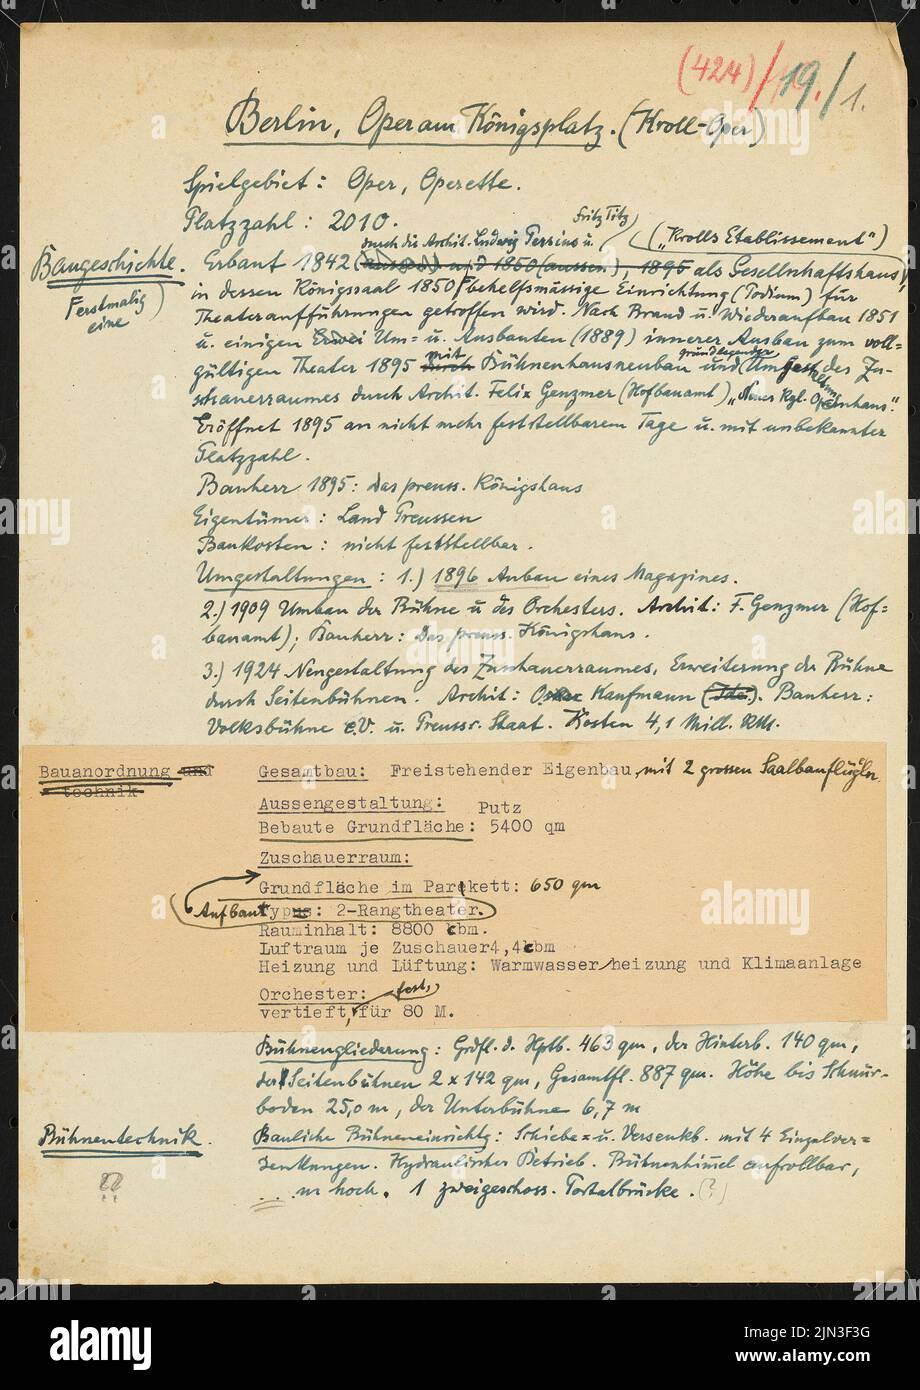 (424) / 19. / 1.
Berlin, Oper am Königsplatz. (Kroll-Oper)
Spielgebiet: Oper, Operette.
Platzzahl: 2010.
Fritz Titz
durch die Archit. Ludwig Persius u.
("Krolls Etablissement")
Baugeschichte. Erbaut 1842 (aussen) und 1850 (aussen), 1895 als Gesellschaftshaus,
(erstmalig eine)
in dessen Königssaal 1850 behelfsmässige Einrichtung (Podium) für
Theateraufführungen getroffen wird. Nach Brand u. Wiederaufbau 1851
u. einigen Um- u. Ausbauten (1889) innerer Ausbau zum voll=
grundlegender
gültigen Theater 1895 durch mit Bühnenhausneubau und Umgestaltung des Zu-
schauerraumes durch Archit. Felix Genzmer (Hofbauamt) "Neues Kgl. Opernhaus".
Eröffnet 1895 an nicht mehr feststellbarem Tage u. mit unbekannter
Platzzahl.
Bauherr 1895: Das preuss. Königshaus
Eigentümer: Land Preussen
Baukosten: nicht feststellbar.
Umgestaltungen: 1.) 1896 Anbau eines Magazines.
2.) 1909 Umbau der Bühne u. des Orchesters. Archit: F. Genzmer (Hof=
bauamt); Bauherr: Das preuss. Königshaus.
3.) 1924 Neugestaltung des Zuschauerraumes, Erweiterung der Bühne
durch Seitenbühnen. Archit: Oskar Kaufmann. Bauherr:
Volksbühne e.V. u. Preuss. Staat. Kosten 4,1 Mill. RM.
Bauanordnung und
technik
Gesamtbau: Freistehender Eigenbau, mit 2 grossen Saalbauflügeln.
Aussengestaltung: Putz
Bebaute Grundfläche: 5400 qm
Zuschauerraum:
Grundfläche im Parkett: 650 qm
Aufbau Typus: 2-Rangtheater.
Rauminhalt: 8800 cbm.
Luftraum je Zuschauer 4,4 cbm
Heizung und Lüftung: Warmwasserheizung und Klimaanlage
Orchester: fest,
vertieft, für 80 M.
Bühnengliederung: Grdfl. d. Hptb. 463 qm, der Hinterb. 140 qm,
der Seitenbühnen 2 x 142 qm, Gesamtfl. 887 qm. Höhe bis Schnür-
boden 25,0 m, der Unterbühne 6,7 m
Bühnentechnik. Bauliche Bühneneinrichtg: Schiebe= u. Versenkb. mit 4 Einzelver=
senkungen. Hydraulischer Betrieb. Bühnenhimmel aufrollbar,
... m hoch. 1 zweigeschoss. Portalbrücke. (?)
??
alamy
Image ID: 2JN3F3G
www.alamy.com